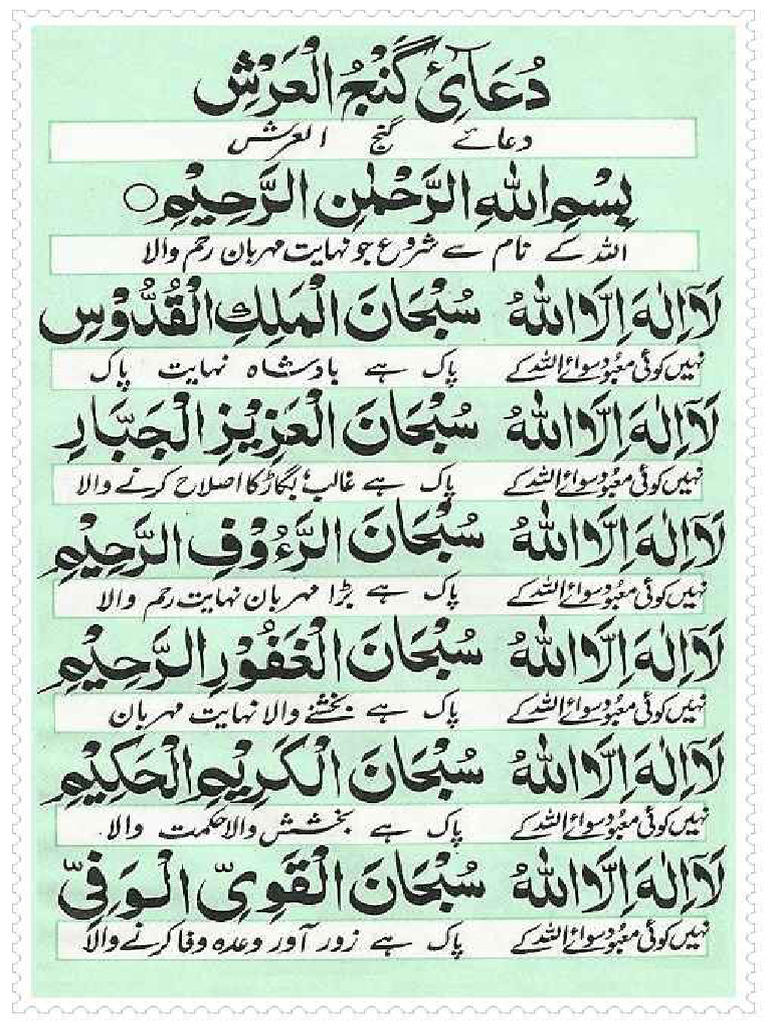 دُعَآئِ گَنْجُ الْعَرْشِ
دعائے گنج العرش
بِسْمِ اللّٰهِ الرَّحْمٰنِ الرَّحِيْمِ○
اللہ کے نام سے شروع جو نہایت مہربان رحم والا
لَآ اِلٰهَ اِلَّا اللّٰهُ سُبْحَانَ الْمَلِكِ الْقُدُّوْسِ
نہیں کوئی معبود سوائے اللہ کے پاک ہے بادشاہ نہایت پاک
لَآ اِلٰهَ اِلَّا اللّٰهُ سُبْحَانَ الْعَزِيْزِ الْجَبَّارِ
نہیں کوئی معبود سوائے اللہ کے پاک ہے غالب بگاڑ کا اصلاح کرنے والا
لَآ اِلٰهَ اِلَّا اللّٰهُ سُبْحَانَ الرَّءُوْفِ الرَّحِيْمِ
نہیں کوئی معبود سوائے اللہ کے پاک ہے بڑا مہربان نہایت رحم والا
لَآ اِلٰهَ اِلَّا اللّٰهُ سُبْحَانَ الْغَفُوْرِ الرَّحِيْمِ
نہیں کوئی معبود سوائے اللہ کے پاک ہے بخشنے والا نہایت مہربان
لَآ اِلٰهَ اِلَّا اللّٰهُ سُبْحَانَ الْكَرِيْمِ الْحَكِيْمِ
نہیں کوئی معبود سوائے اللہ کے پاک ہے بخشش والا حکمت والا
لَآ اِلٰهَ اِلَّا اللّٰهُ سُبْحَانَ الْقَوِيِّ الْوَفِيِّ
نہیں کوئی معبود سوائے اللہ کے پاک ہے زور آور وعدہ وفا کرنے والا